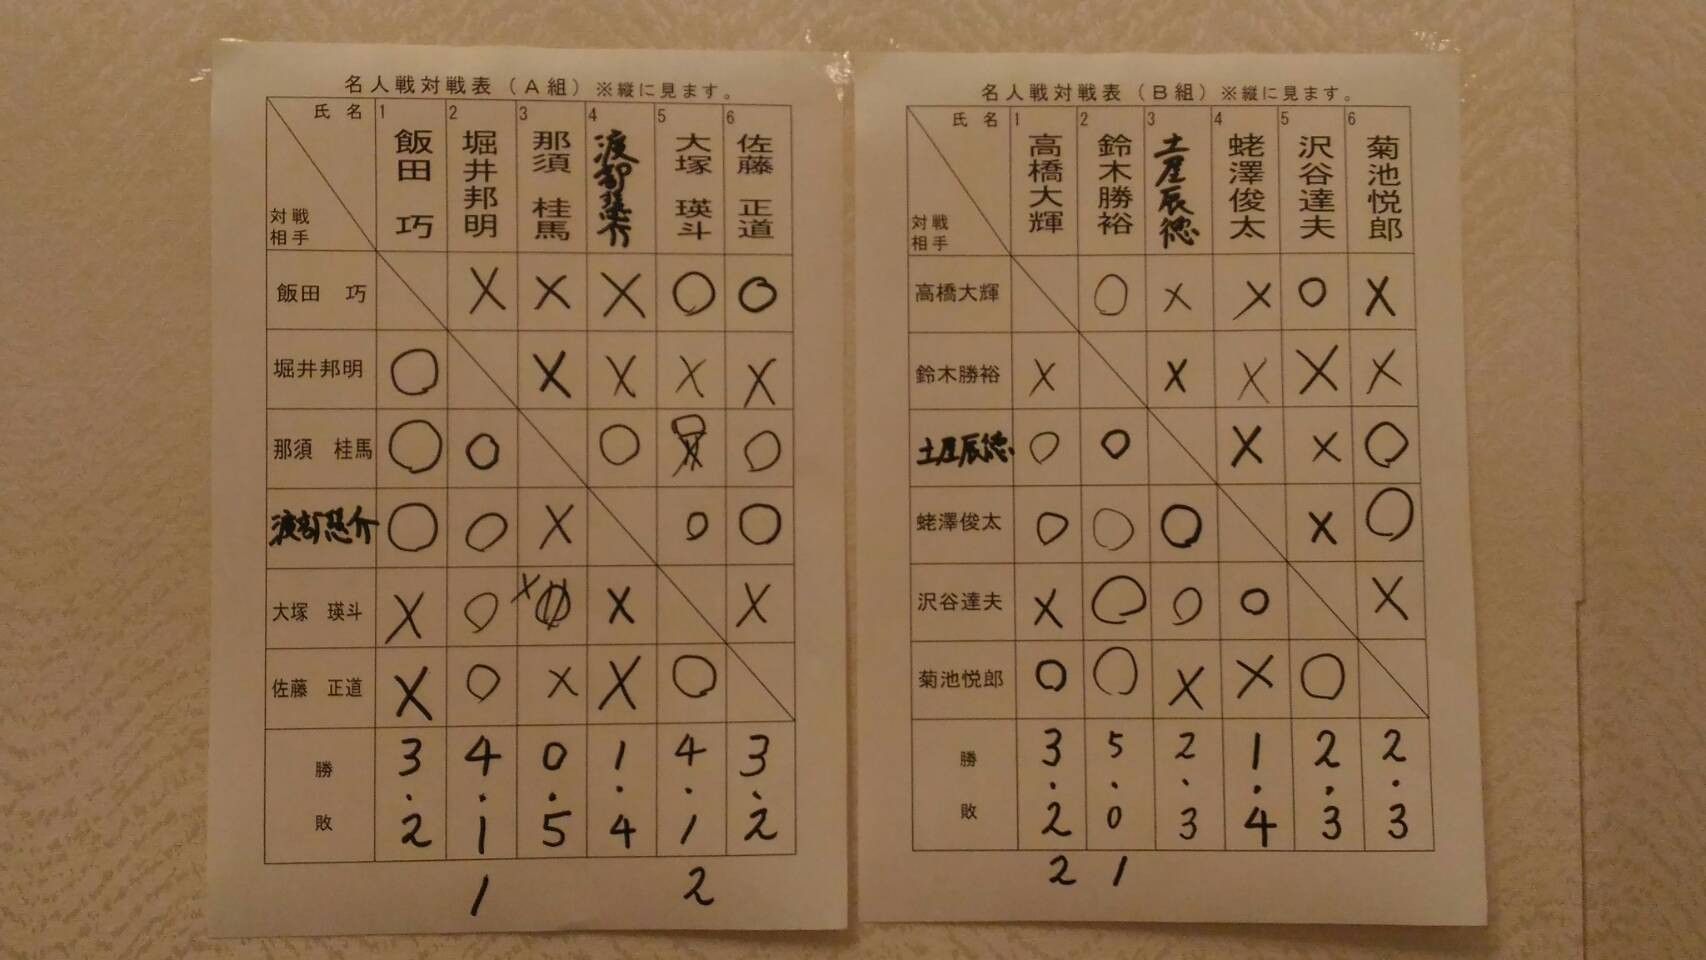 名人戦対戦表（A組）※縦に見ます。
氏 名 1 2 3 4 5 6
対戦相手 飯田 巧 堀井邦明 那須 桂馬 渡部悠介 大塚 瑛斗 佐藤 正道
飯田 巧 × × × ○ ○
堀井邦明 ○ × × × ×
那須 桂馬 ○ ○ ○ ○ ○
渡部悠介 ○ ○ × ○ ○
大塚 瑛斗 × ○ × × ×
佐藤 正道 × ○ × × ○
勝 3 4 0 1 4 3
・ ・ ・ ・ ・ ・
敗 2 1 5 4 1 2
1 2
名人戦対戦表（B組）※縦に見ます。
氏 名 1 2 3 4 5 6
対戦相手 高橋大輝 鈴木勝裕 土屋辰徳 蛯澤俊太 沢谷達夫 菊池悦郎
高橋大輝 ○ × × ○ ×
鈴木勝裕 × × × × ×
土屋辰徳 ○ ○ × × ○
蛯澤俊太 ○ ○ ○ × ○
沢谷達夫 × ○ ○ ○ ×
菊池悦郎 ○ ○ × × ○
勝 3 5 2 1 2 2
・ ・ ・ ・ ・ ・
敗 2 0 3 4 3 3
2 1